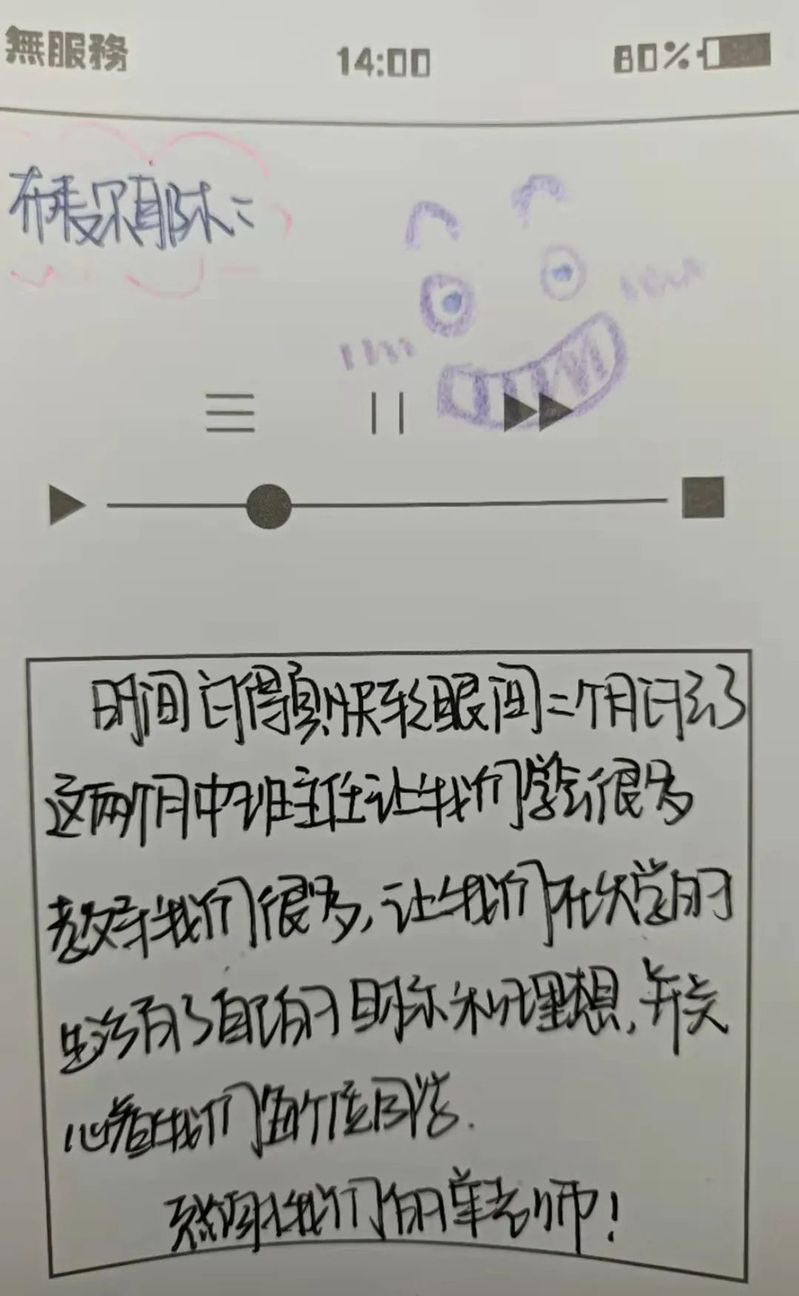 無服務 14:00 80%
时间过得真快转眼间二个月过去了
这两个月中班主任让我们学会很多
教我们很多,让我们在大学的
生活有了自己的目标和理想,并关
心着我们每个位同学.
我们的单老师!